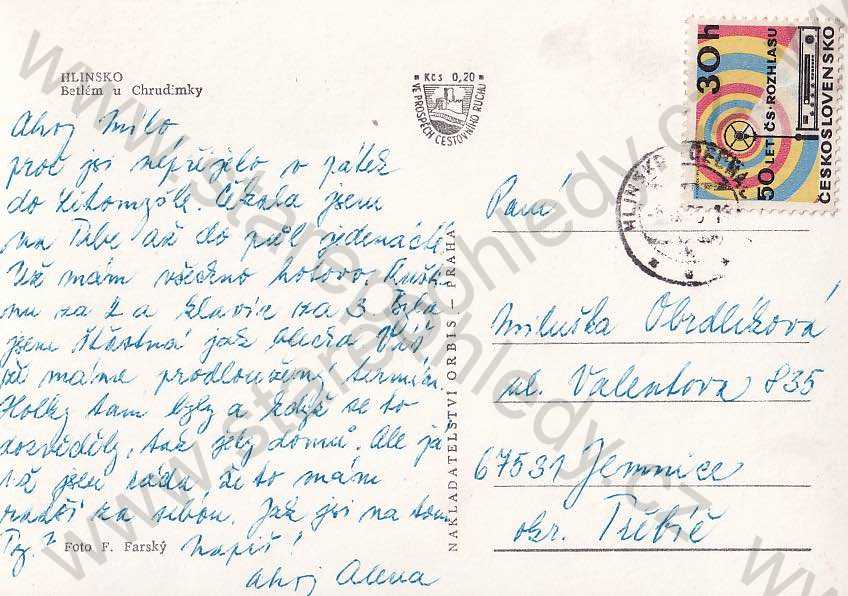 HLINSKO
Betlém u Chrudimky
Kčs 0,20
VE PROSPĚCH CESTOVNÍHO RUCHU
30 h
50 LET ČS. ROZHLASU
ČESKOSLOVENSKO
HLINSKO V ČECHÁCH
Ahoj Milo,
proč jsi nepřijela v pátek
do Litomyšle. Čekala jsem
na Tebe až do půl jedenácté.
Už mám všechno hotovo.
za 2 a klavír za 3. Byla
jsem šťastná jak blecha. Víš,
že máme prodloužený termín.
Holky tam byly a když se to
dozvěděly, tak jely domů. Ale já
už jsem ráda, že to mám
radši za sebou. Jak jsi na tom
Ty? Napiš!
Ahoj Alena
Foto F. Farský
NAKLADATELSTVÍ ORBIS — PRAHA
Paní
Miluška Obrdlíková
ul. Valentova 835
67531 Jemnice
okr. Třebíč
www.starepohledy.cz
www.starepohledy.cz
www.starepohledy.cz